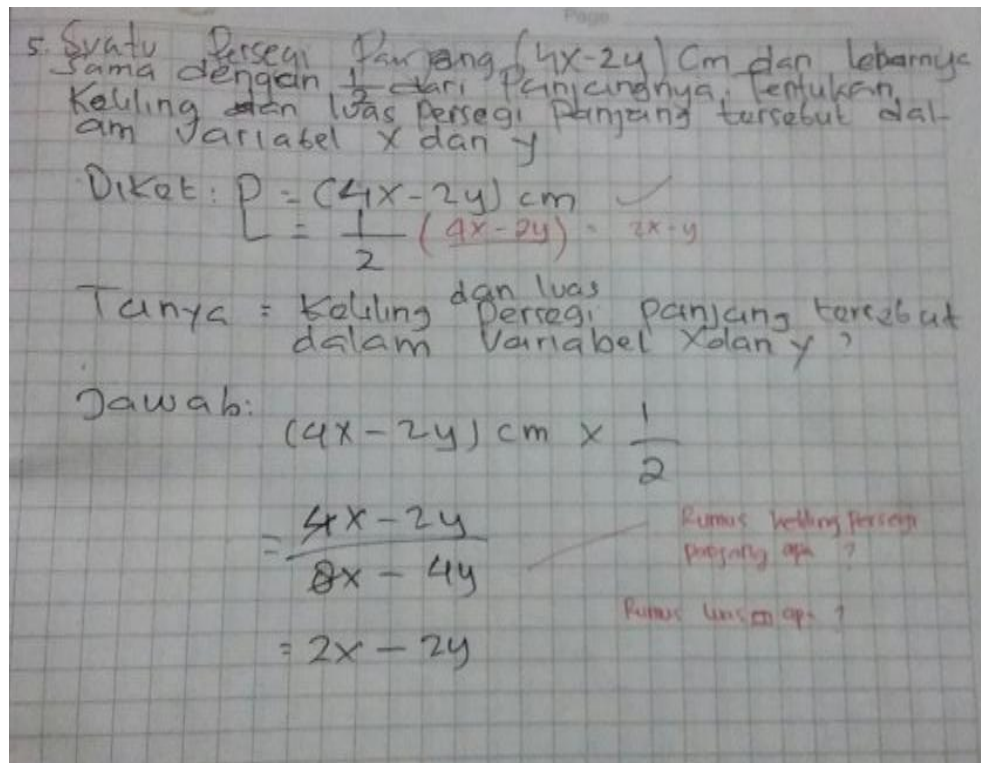 Page
5. Suatu Persegi Panjang (4x-2y) Cm dan lebarnya
Sama dengan 1/2 dari Panjangnya. Tentukan
Keliling dan luas Persegi Panjang tersebut dal-
am Variabel x dan y
Diket: P = (4x-2y) cm
L = 1/2 (4x-2y) = 2x-y
dan luas
Tanya = Keliling Persegi panjang tersebut
dalam Variabel X dan y?
Jawab:
(4x-2y) cm x 1/2
= 4x-2y
8x-4y
Rumus keliling Persegi
panjang apa ?
= 2x-2y
Rumus luas apa ?